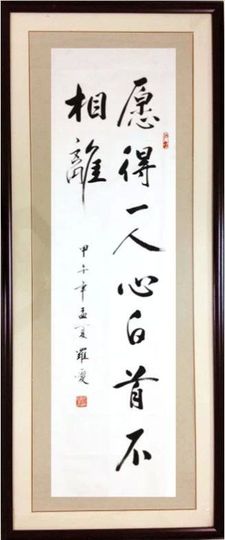 愿得一人心白首不
相離
甲午年孟夏羅愛